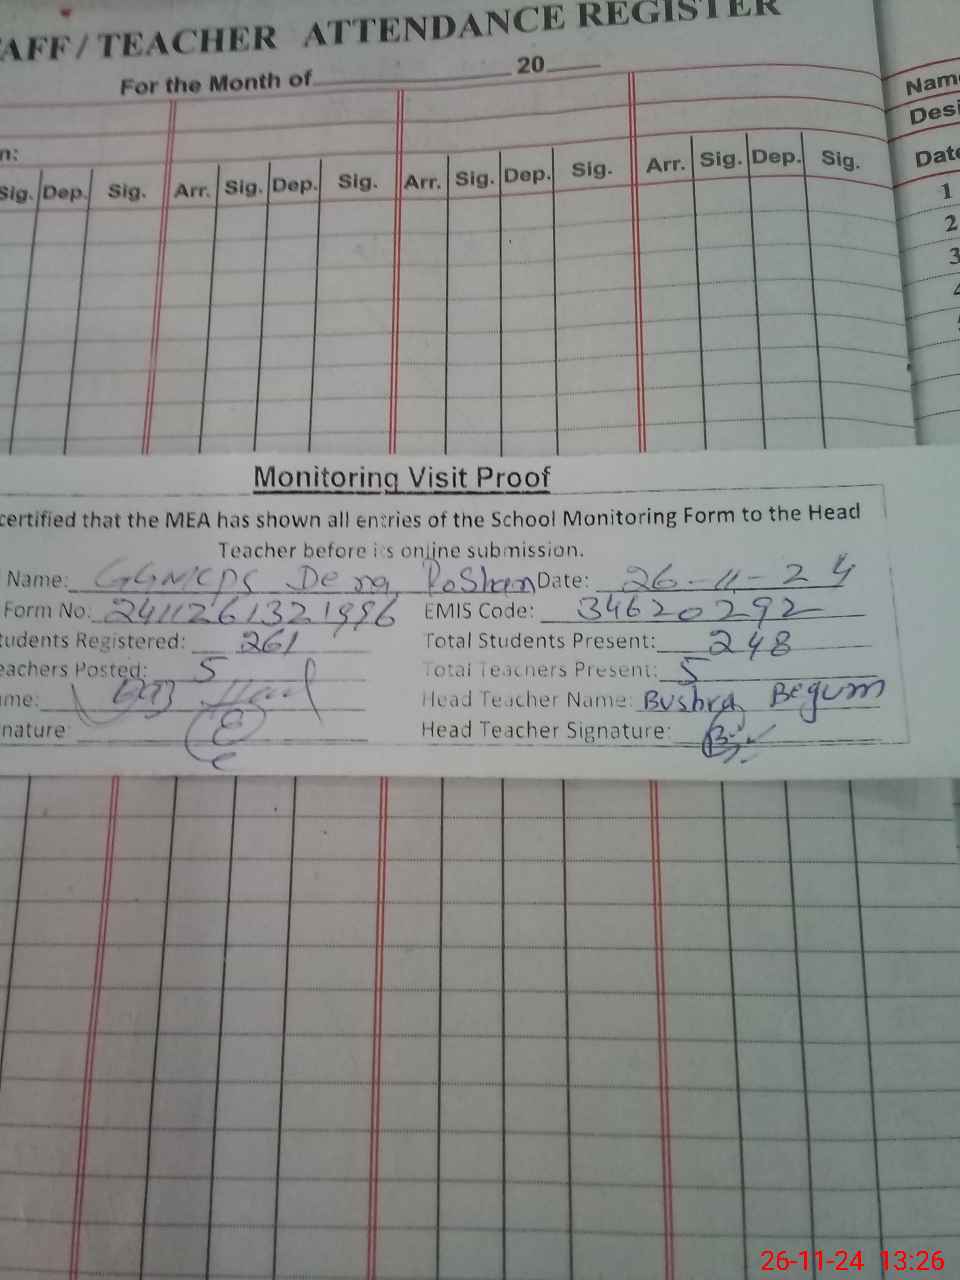 AFF / TEACHER ATTENDANCE REGISTER
For the Month of 20
Name
Desi
n:
Date
Sig. Dep. Sig. Arr. Sig. Dep. Sig. Arr. Sig. Dep. Sig. Arr. Sig. Dep. Sig.
1
2
3
4
5
Monitoring Visit Proof
certified that the MEA has shown all entries of the School Monitoring Form to the Head
Teacher before its online submission.
Name: GGMCPS Dera RoShan Date: 26-11-24
Form No: 2411261321996 EMIS Code: 34620292
tudents Registered: 261 Total Students Present: 248
eachers Posted: 5 Total Teachers Present: 5
me: Head Teacher Name: Bushra Begum
nature Head Teacher Signature:
26-11-24 13:26